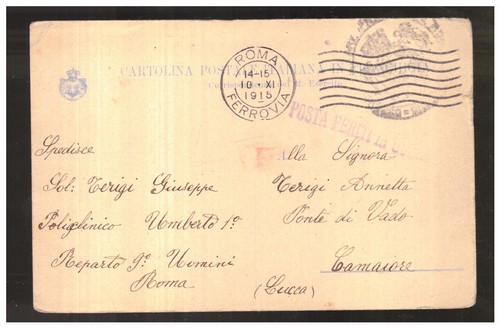 ROMA
14-15
10 XI
1915
FERROVIA
CARTOLINA POSTALE ITALIANA IN FRANCHIGIA
POSTA FERITI
Spedisce
Sol: Terigi Giuseppe
Policlinico Umberto 1º
Reparto 9º Uomini
Roma
Alla Signora
Terigi Annetta
Ponte di Vado
Camaiore
(Lucca)